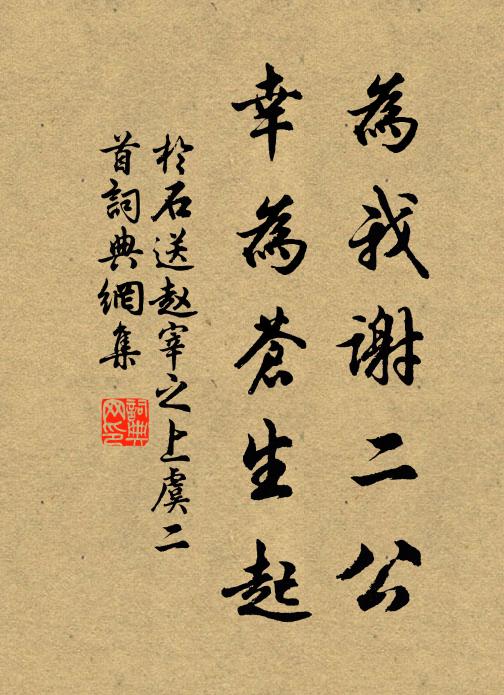 為我謝二公
幸為蒼生起
於石送赵宰之上虞二
首詞典網集
詞典
网印